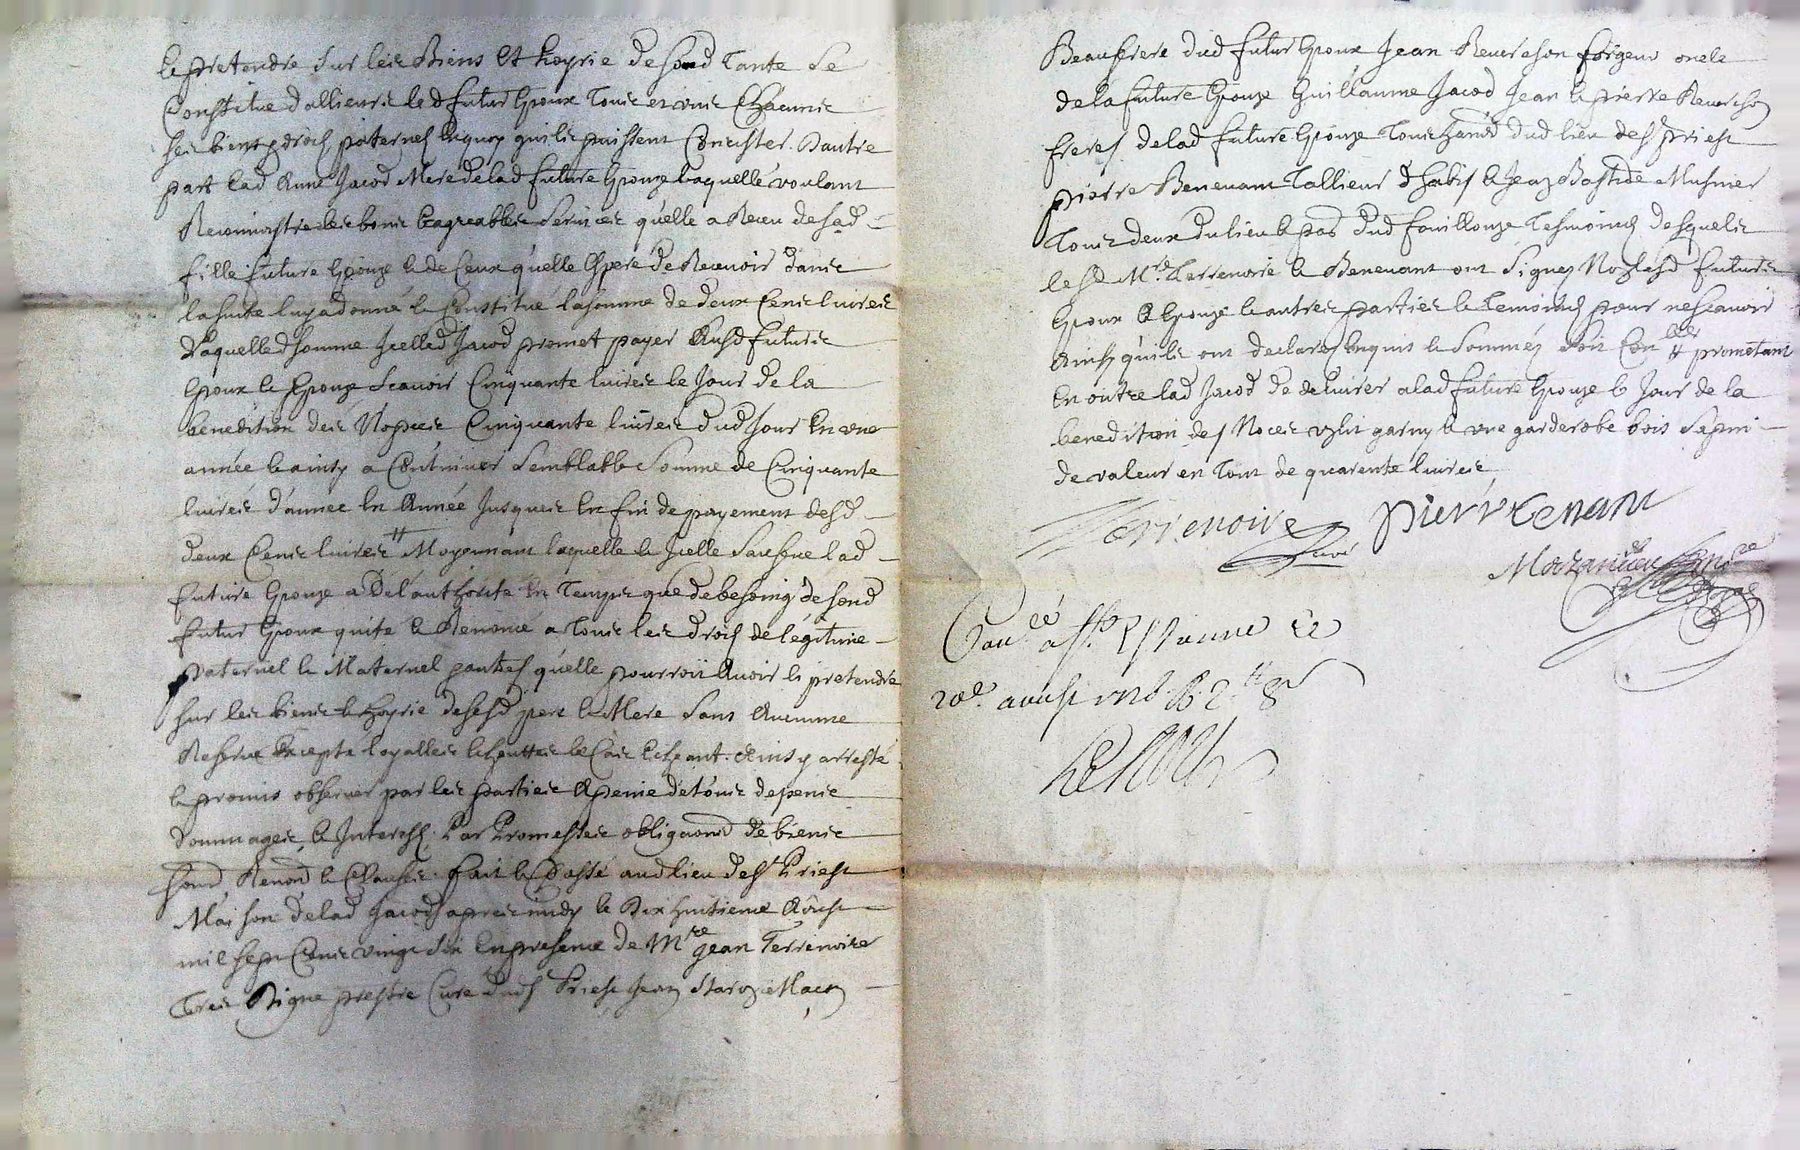 et pretendre sur leis Biens et hoyrie desond Tante Se
Constitue dallieurs led futur Epoux Touts et uns Chacuns
ses biens et droits paternels en quoy quils puissent Consister. Dautre
part lad Anne Jacod Mere delad future Epouze laquelle voulant
Reconnoistre les bons et agreables services quelle a Receu desad
fille future Epouze et de Ceux quelle Espere de Recevoir dans
la suitte luy a donné et Constitué la somme de deux Cents livres
Laquelle somme Icelled Jacod promet payer Ausd futurs
Epoux et Epouze Scavoir Cinquante livres le Jour de la
benedition des Nopces Cinquante livres dud Jour En une
année et ainsy a Continuer semblable Somme de Cinquante
livres d'année En Année Jusques En fin de payement desd
deux Cents livres # Moyennant laquelle et Icelle Receue lad
future Epouze a De l'authorite En Temps que de besoing de sond
futur Epoux quité et Renoncé a Touts les droits de légitime
paternel et Maternel quelle pourroit Avoir et pretendre
sur les biens et hoyrie desesd pere et Mere Sans Aucunne
Reserve Excepte loyalle Escheutte le Cas Echeant. Ainsy arresté
et promis observer par les parties Apeine de touts depens
dommages et Interests. Par Promesses obligaond de biens
soud Renond et Clauses. fait et Passé aud lieu de St Priest
Maison delad Jacod apres midy le Dix huitieme Aoust
mil sept Cents vingt six En presence de Mre Jean Terrenoire
Tres Digne prestre Curé dud St Priest Jean
Beaufrere dud futur Epoux Jean Reverchon forgeur oncle
de la future Epouze Guillaume Jacod Jean et pierre Reverchon
freres delad future Epouze Touts dud lieu de St Priest
pierre Benevant Tallieur d'habis et Jean Bastide Musnier
Touts deux du lieu et par dud fouillouze Tesmoings desquels
lesd Mre Terrenoire et Benevant ont Signez Non lesd futurs
Epoux et Epouze et autres parties et temoins pour ne scavoir
Ainsy quils ont declarez Enquis et Sommez Soit Con lles # prometant
En outre lad Jacod de delivrer a lad future Epouze le Jour de la
benedition des Noces un lit garny et une garderobe bois Sapin
de valeur en Tout de quarente livres
Terrenoire
Curé
pierre benevant
Con.lé a St Estienne ce
20e. aoust 1726.